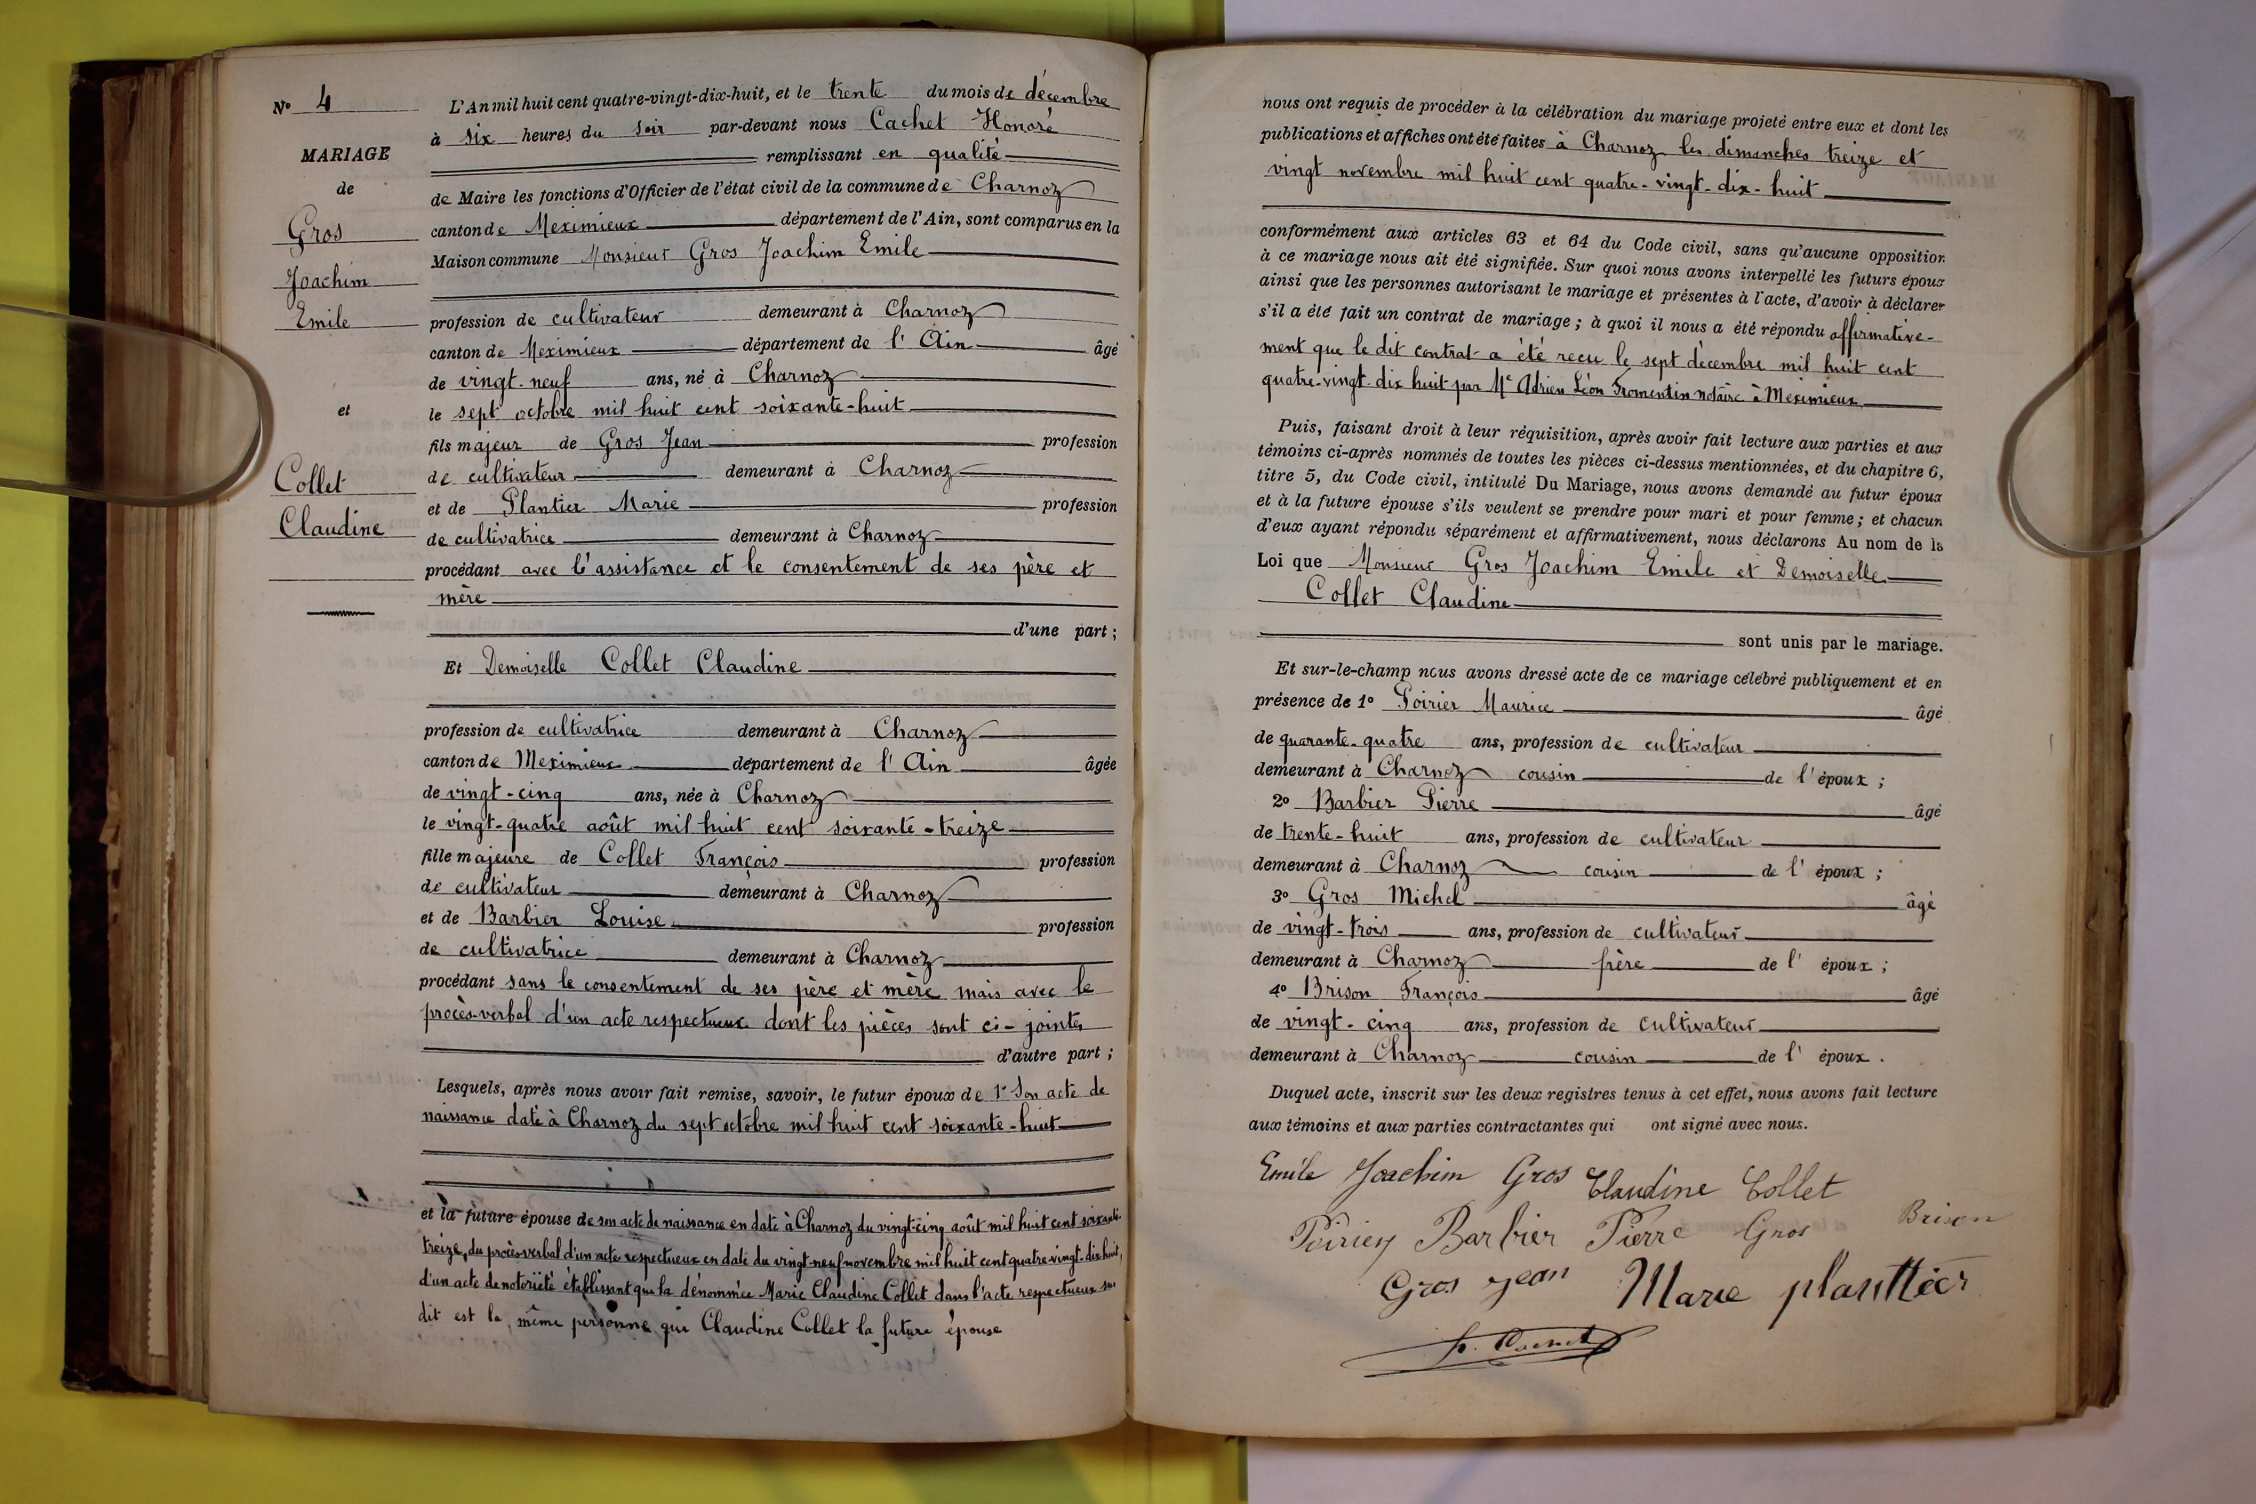 N° 4
MARIAGE
de
Gros
Joachim
Emile
et
Collet
Claudine
L'An mil huit cent quatre-vingt-dix-huit, et le trente du mois de décembre
à six heures du soir par-devant nous Cachet Honoré
remplissant en qualité
de Maire les fonctions d'Officier de l'état civil de la commune de Charnoz
canton de Meximieux département de l'Ain, sont comparus en la
Maison commune Monsieur Gros Joachim Emile
profession de cultivateur demeurant à Charnoz
canton de Meximieux département de l'Ain âgé
de vingt-neuf ans, né à Charnoz
le sept octobre mil huit cent soixante-huit
fils majeur de Gros Jean profession
de cultivateur demeurant à Charnoz
et de Plantier Marie profession
de cultivatrice demeurant à Charnoz
procédant avec l'assistance et le consentement de ses père et
mère
d'une part ;
Et Demoiselle Collet Claudine
profession de cultivatrice demeurant à Charnoz
canton de Meximieux département de l'Ain âgée
de vingt-cinq ans, née à Charnoz
le vingt-quatre août mil huit cent soixante-treize
fille majeure de Collet François profession
de cultivateur demeurant à Charnoz
et de Barbier Louise profession
de cultivatrice demeurant à Charnoz
procédant sans le consentement de ses père et mère mais avec le
procès-verbal d'un acte respectueux dont les pièces sont ci-jointes
d'autre part ;
Lesquels, après nous avoir fait remise, savoir, le futur époux de 1° Son acte de
naissance daté à Charnoz du sept octobre mil huit cent soixante-huit
et la future épouse de son acte de naissance en date à Charnoz du vingt-cinq août mil huit cent soixante-
treize, du procès-verbal d'un acte respectueux en date du vingt-neuf novembre mil huit cent quatre-vingt-dix-huit,
d'un acte de notoriété établissant que la dénommée Marie Claudine Collet dans l'acte respectueux sus
dit est la même personne que Claudine Collet la future épouse
nous ont requis de procéder à la célébration du mariage projeté entre eux et dont les
publications et affiches ont été faites à Charnoz les dimanches treize et
vingt novembre mil huit cent quatre-vingt-dix-huit
conformément aux articles 63 et 64 du Code civil, sans qu'aucune opposition
à ce mariage nous ait été signifiée. Sur quoi nous avons interpellé les futurs époux
ainsi que les personnes autorisant le mariage et présentes à l'acte, d'avoir à déclarer
s'il a été fait un contrat de mariage ; à quoi il nous a été répondu affirmative-
ment que le dit contrat a été recu le sept décembre mil huit cent
quatre-vingt-dix huit par Me Adrien Léon Fromentin notaire à Meximieux
Puis, faisant droit à leur réquisition, après avoir fait lecture aux parties et aux
témoins ci-après nommés de toutes les pièces ci-dessus mentionnées, et du chapitre 6,
titre 5, du Code civil, intitulé Du Mariage, nous avons demandé au futur époux
et à la future épouse s'ils veulent se prendre pour mari et pour femme ; et chacun
d'eux ayant répondu séparément et affirmativement, nous déclarons Au nom de la
Loi que Monsieur Gros Joachim Emile et Demoiselle
Collet Claudine
sont unis par le mariage.
Et sur-le-champ nous avons dressé acte de ce mariage célébré publiquement et en
présence de 1° Poirier Maurice âgé
de quarante-quatre ans, profession de cultivateur
demeurant à Charnoz cousin de l'époux ;
2° Barbier Pierre âgé
de trente-huit ans, profession de cultivateur
demeurant à Charnoz cousin de l'époux ;
3° Gros Michel âgé
de vingt-trois ans, profession de cultivateur
demeurant à Charnoz frère de l'époux ;
4° Brison François âgé
de vingt-cinq ans, profession de cultivateur
demeurant à Charnoz cousin de l'époux.
Duquel acte, inscrit sur les deux registres tenus à cet effet, nous avons fait lecture
aux témoins et aux parties contractantes qui ont signé avec nous.
Emile Joachim Gros Claudine Collet
Poirier Barbier Pierre Gros Brison
Gros Jean Marie planttier
h. Cachet